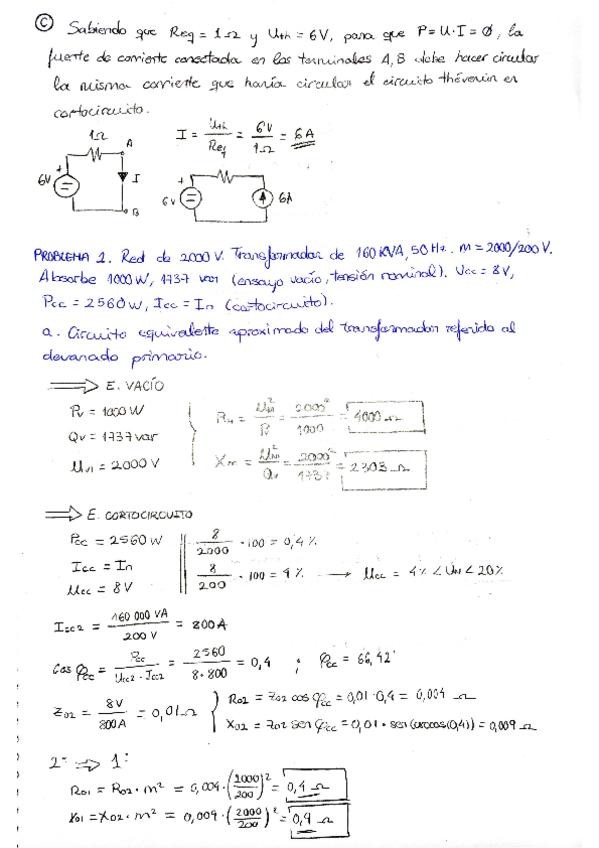 C Sabiendo que Req = 1Ω y Uth = 6V, para que P = U·I = Ø, la
fuente de corriente conectada en los terminales A, B debe hacer circular
la misma corriente que haría circular el circuito thévenin en
cortocircuito.
1Ω A I = Uth/Req = 6V/1Ω = 6A
6V + I 6V + 6A
B
PROBLEMA 1. Red de 2000 V. Transformador de 160 KVA, 50 Hz. m = 2000/200 V.
Absorbe 1000 W, 1737 var (ensayo vacío, tensión nominal). Ucc = 8V,
Pcc = 2560 W, Icc = In (cortocircuito).
a. Circuito equivalente aproximado del transformador referido al
devanado primario.
⟹ E. VACÍO
Pv = 1000 W
Qv = 1737 var
Un1 = 2000 V
= 2000²/1000 = 4000 Ω
= 2000²/1737 = 2303 Ω
⟹ E. CORTOCIRCUITO
Pcc = 2560 W 8/2000 · 100 = 0,4 %
Icc = In 8/200 · 100 = 4 % → Ucc = 4% < Un < 20%
Ucc = 8V
Icc2 = 160 000 VA/200 V = 800 A
Cos φcc = Pcc/(Ucc2 · Icc2) = 2560/(8·800) = 0,4 ; φcc = 66,42°
Z02 = 8V/800A = 0,01 Ω { R02 = Z02 cos φcc = 0,01·0,4 = 0,004 Ω
X02 = Z02 sen φcc = 0,01 · sen(arccos(0,4)) = 0,009 Ω
2: ⟹ 1:
R01 = R02 · m² = 0,004 · (2000/200)² = 0,4 Ω
X01 = X02 · m² = 0,009 · (2000/200)² = 0,9 Ω